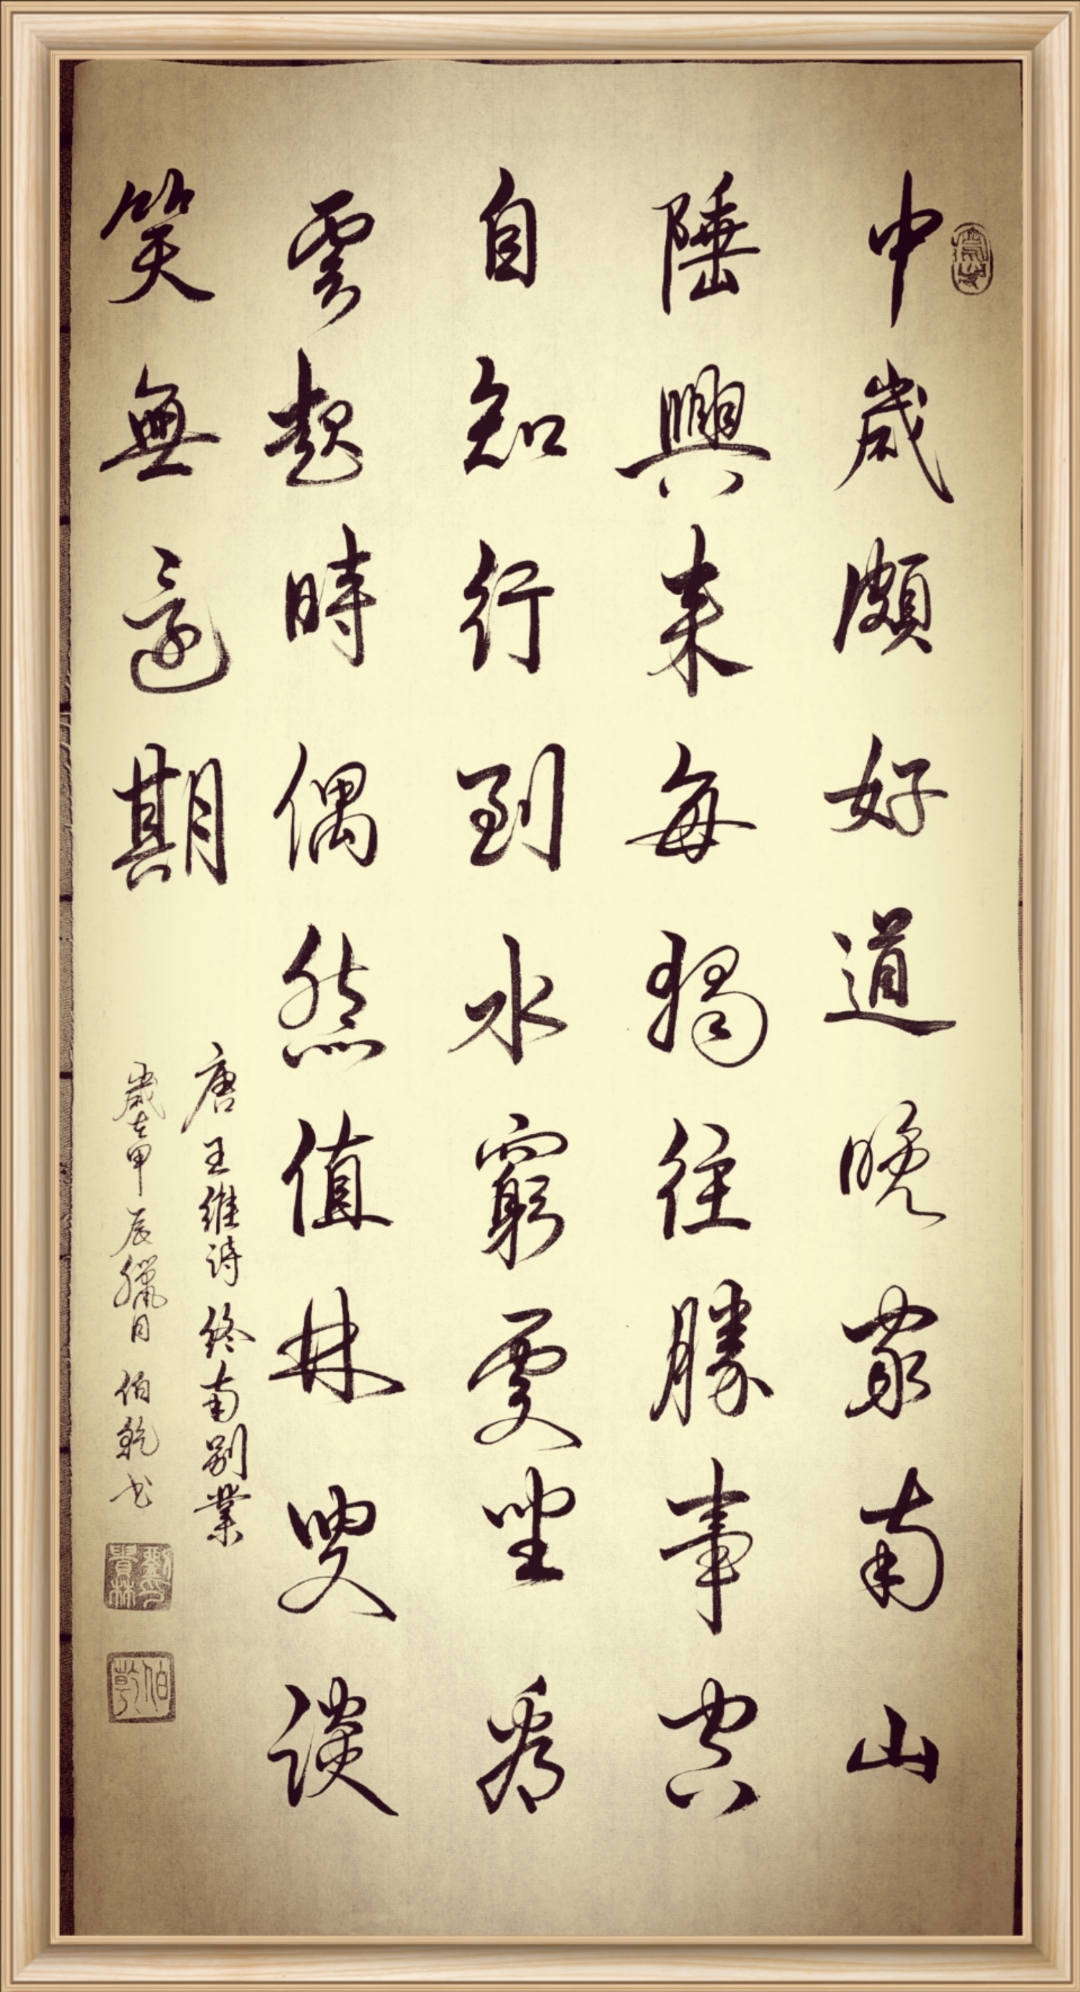 中歲頗好道晚家南山
陲興來每獨往勝事空
自知行到水窮處坐看
雲起時偶然值林叟談
笑無還期
唐王維詩終南別業
歲在甲辰臘月伯乾书
伯乾